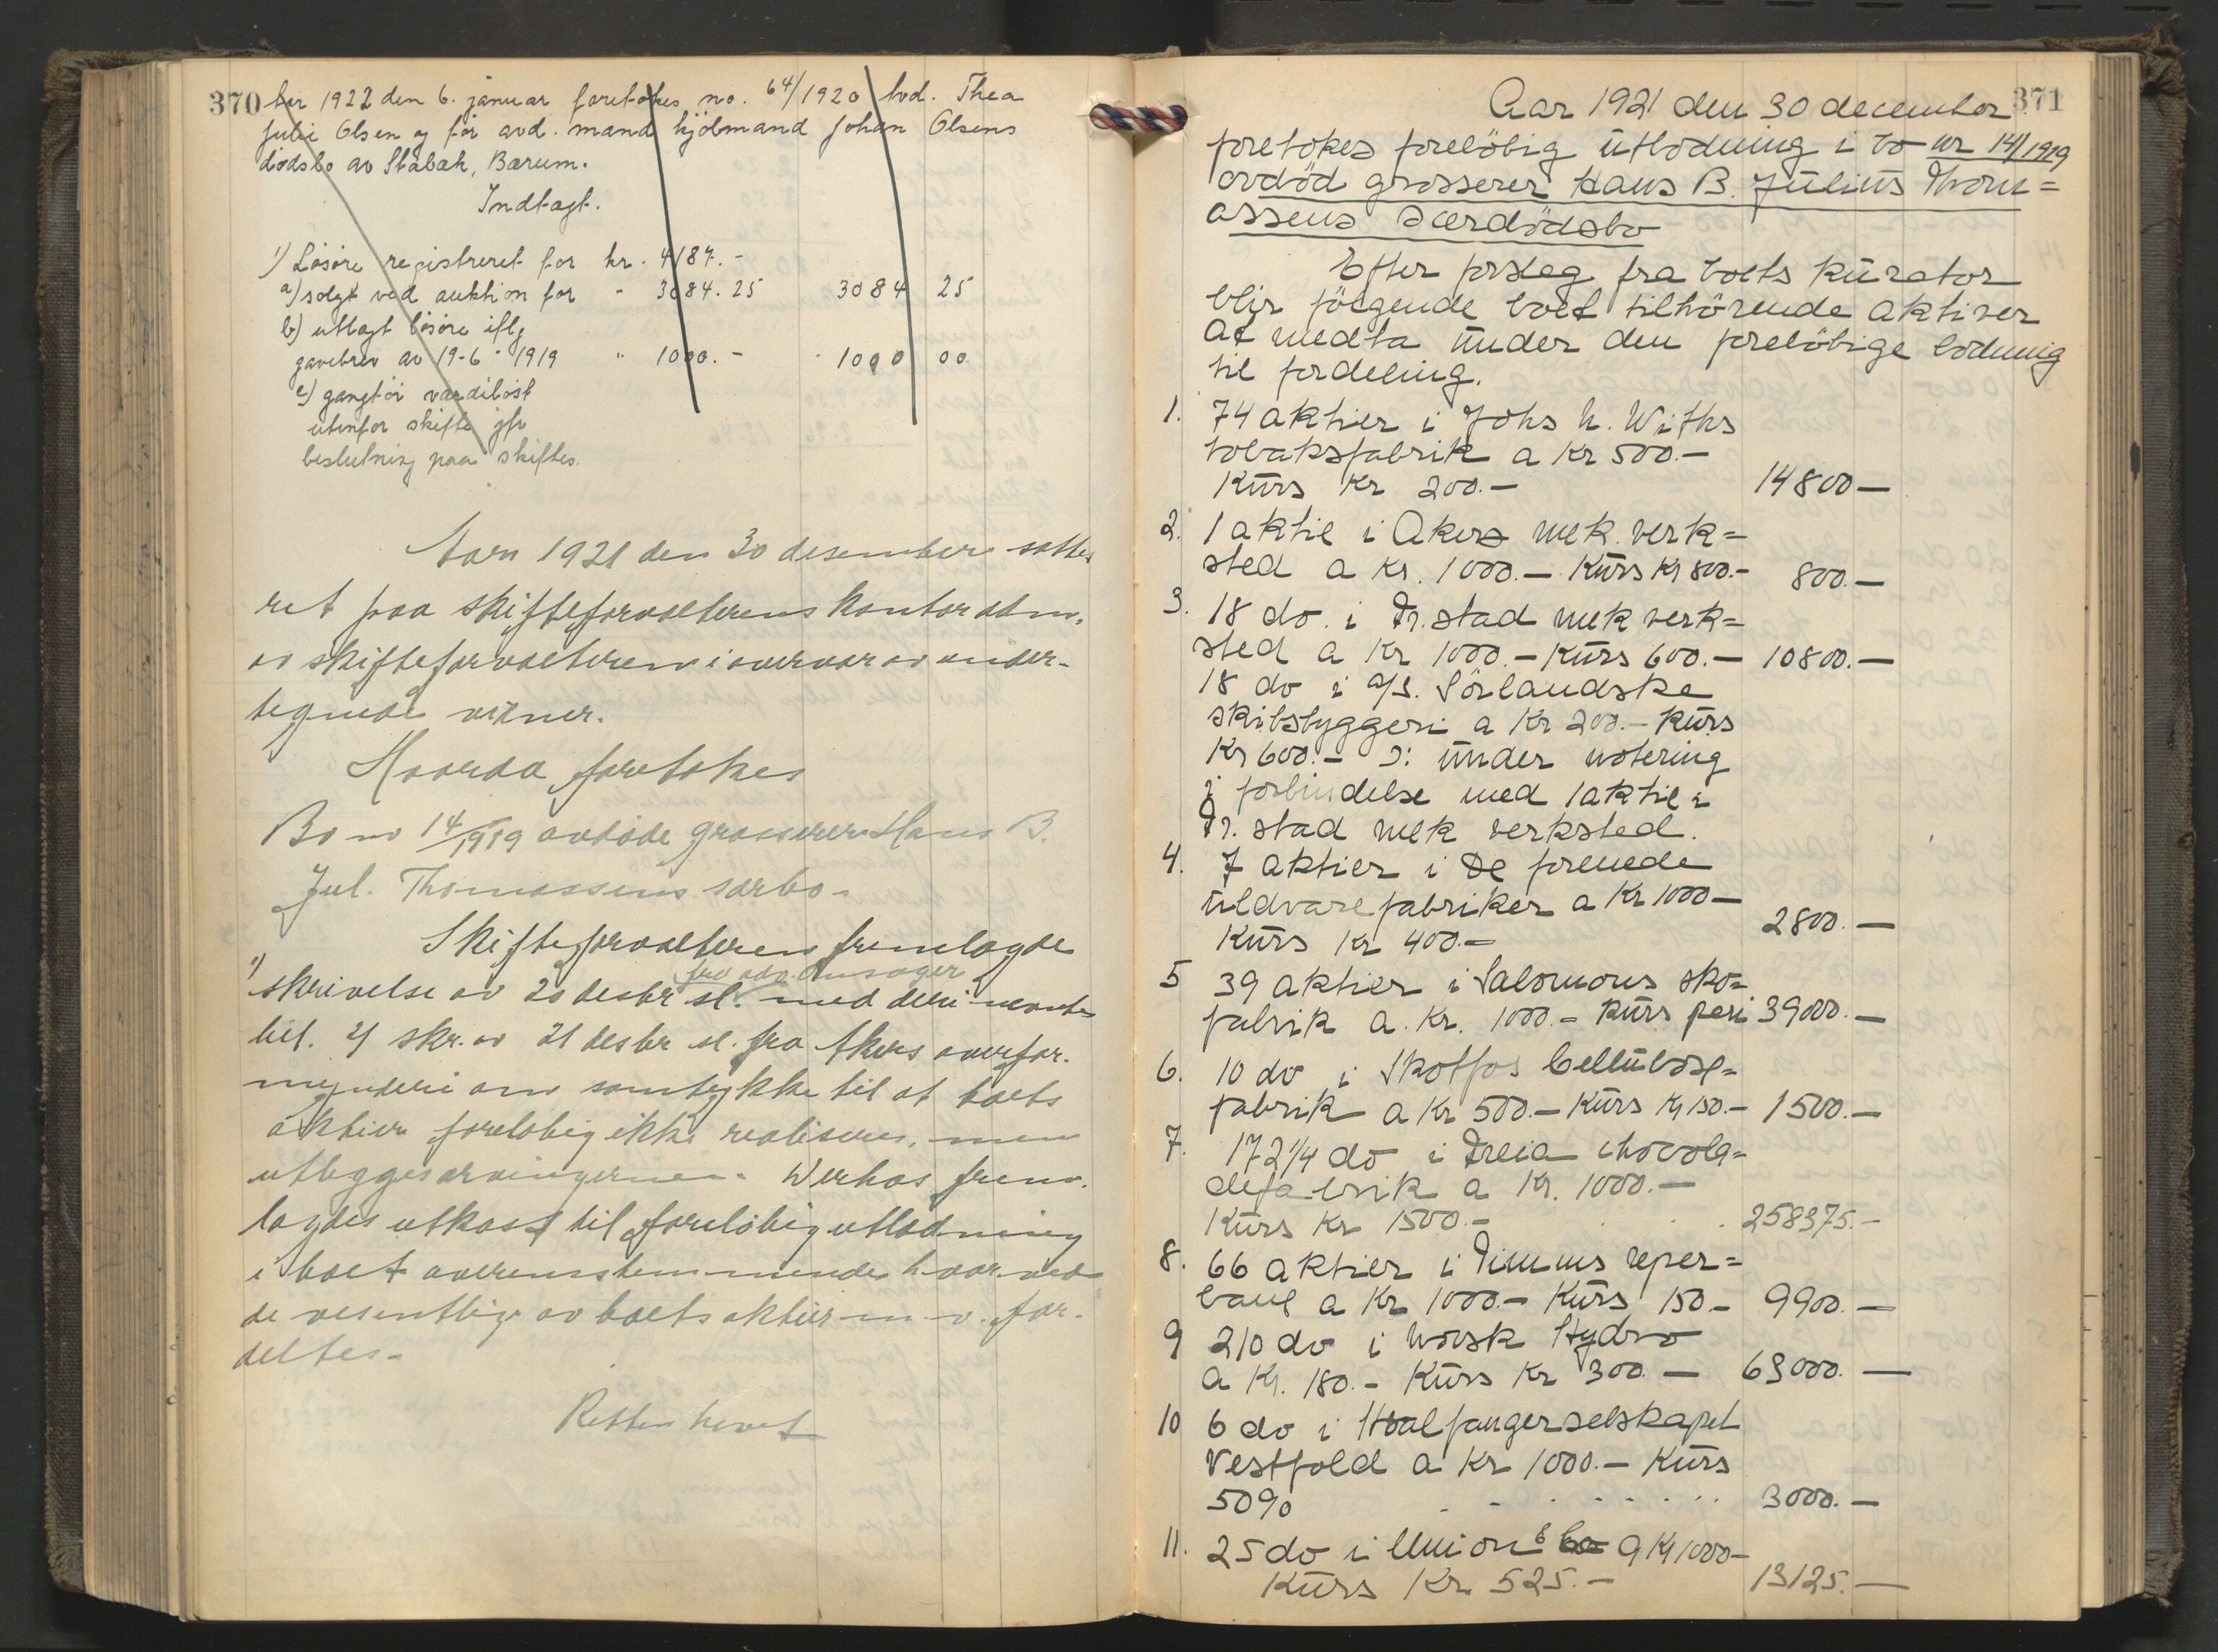 370
Aar 1922 den 6. januar foretokes no. 64/1920 hvd. Thea
Julie Olsen og før avd. mand kjöbmand Johan Olsens
dødsbo av Stabæk, Bærum.
Indtægt.
1) Løsøre registreret for kr. 4187.-
a) solgt ved auktion for " 3084.25 3084 25
b) utlagt løsøre iflg
gavebrev av 19-6-1919 " 1000.- 1000 00
c) gangtöi værdiløst
utenfor skifte jfr
beslutning paa skiftes.
Aar 1921 den 30 desember sattes
ret paa skifteforvalterens kontor adm.
av skifteforvalteren i overvær av under-
tegnede vidner.
Hvorda foretokes
Bo no 14/1919 avdøde grosserer Hans B.
Jul. Thomassens særbo.
Skifteforvalteren fremlagde
fra adv. Ansager
1) skrivelse av 20 desbr sl. med deri nævnte
bil. 2) skr. av 21 desbr sl. fra Akers overfor-
mynderi om samtykke til at boets
aktier foreløbig ikke realiseres, men
utlægges arvingerne. Derhos frem-
lagdes utkast til foreløbig utlodning
i boet overensstemmende hvorved
de vesentlige av boets aktier m. v. for-
deltes.
Retten hevet
371
Aar 1921 den 30 december
foretokes forelöbig utlodning i bo nr 14/1919
avdöd grosserer Hans B. Julius Thom=
assens særdödsbo
Efter forslag fra boets kurator
blir fölgende boet tilhörende aktiver
at medta under den forelöbige lodning
til fordeling.
1. 74 aktier i Johs h. Withs
tobaksfabrik a Kr 500.-
Kurs Kr 200.- 14800-
2. 1 aktie i Akers mek. verk=
sted a Kr. 1000.- Kurs Kr 800.- 800.-
3. 18 do. i Fr.stad mek verk=
sted a Kr 1000.- Kurs 600.- 10800.-
18 do i a/s. Sörlandske
skibsbyggeri a Kr 200.- Kurs
Kr 600.- ɔ: under notering
i forbindelse med 1 aktie i
Fr. stad mek verksted.
4. 7 aktier i De forenede
uldvarefabriker a Kr 1000-
Kurs Kr 400.- 2800.-
5 39 aktier i Salomons sko=
fabrik a. Kr. 1000.- Kurs pari 39000.-
6. 10 do i Skotfos Cellulose=
fabrik a Kr 500.- Kurs Kr 150.- 1500.-
7. 172 1/4 do i Freia chocola=
defabrik a Kr. 1000.-
Kurs Kr 1500.- 258375.-
8. 66 aktier i Timms reper=
bane a Kr 1000.- Kurs 150- 9900.-
9 210 do i Norsk Hydro
a Kr. 180.- Kurs Kr 300.- 63000.-
10 6 do i Hvalfangerselskapet
Vestfold a Kr 1000.- Kurs
50% 3000.-
11. 25 do i Union a Kr 1000-
Kurs Kr. 525.- 13125.-